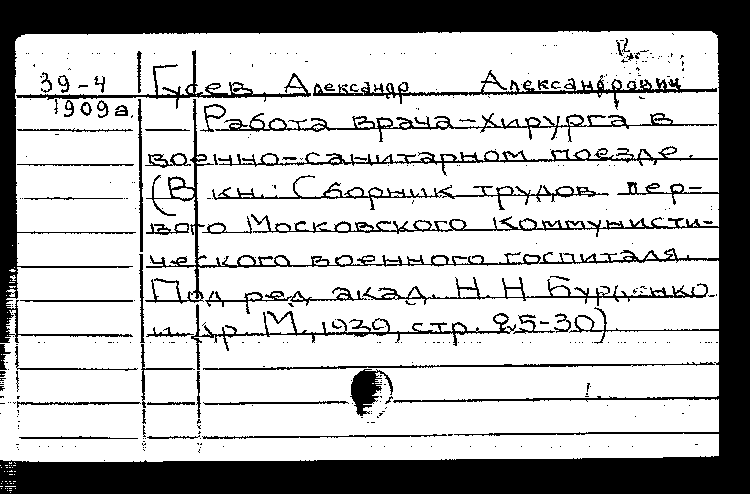 39-4 Гусев, Александр Александрович
1909а Работа врача-хирурга в
военно-санитарном поезде.
(В кн.: Сборник трудов пер-
вого Московского Коммунисти-
ческого военного госпиталя.
Под ред. акад. Н. Н Бурденко
и др. М., 1939, стр. 25-30)